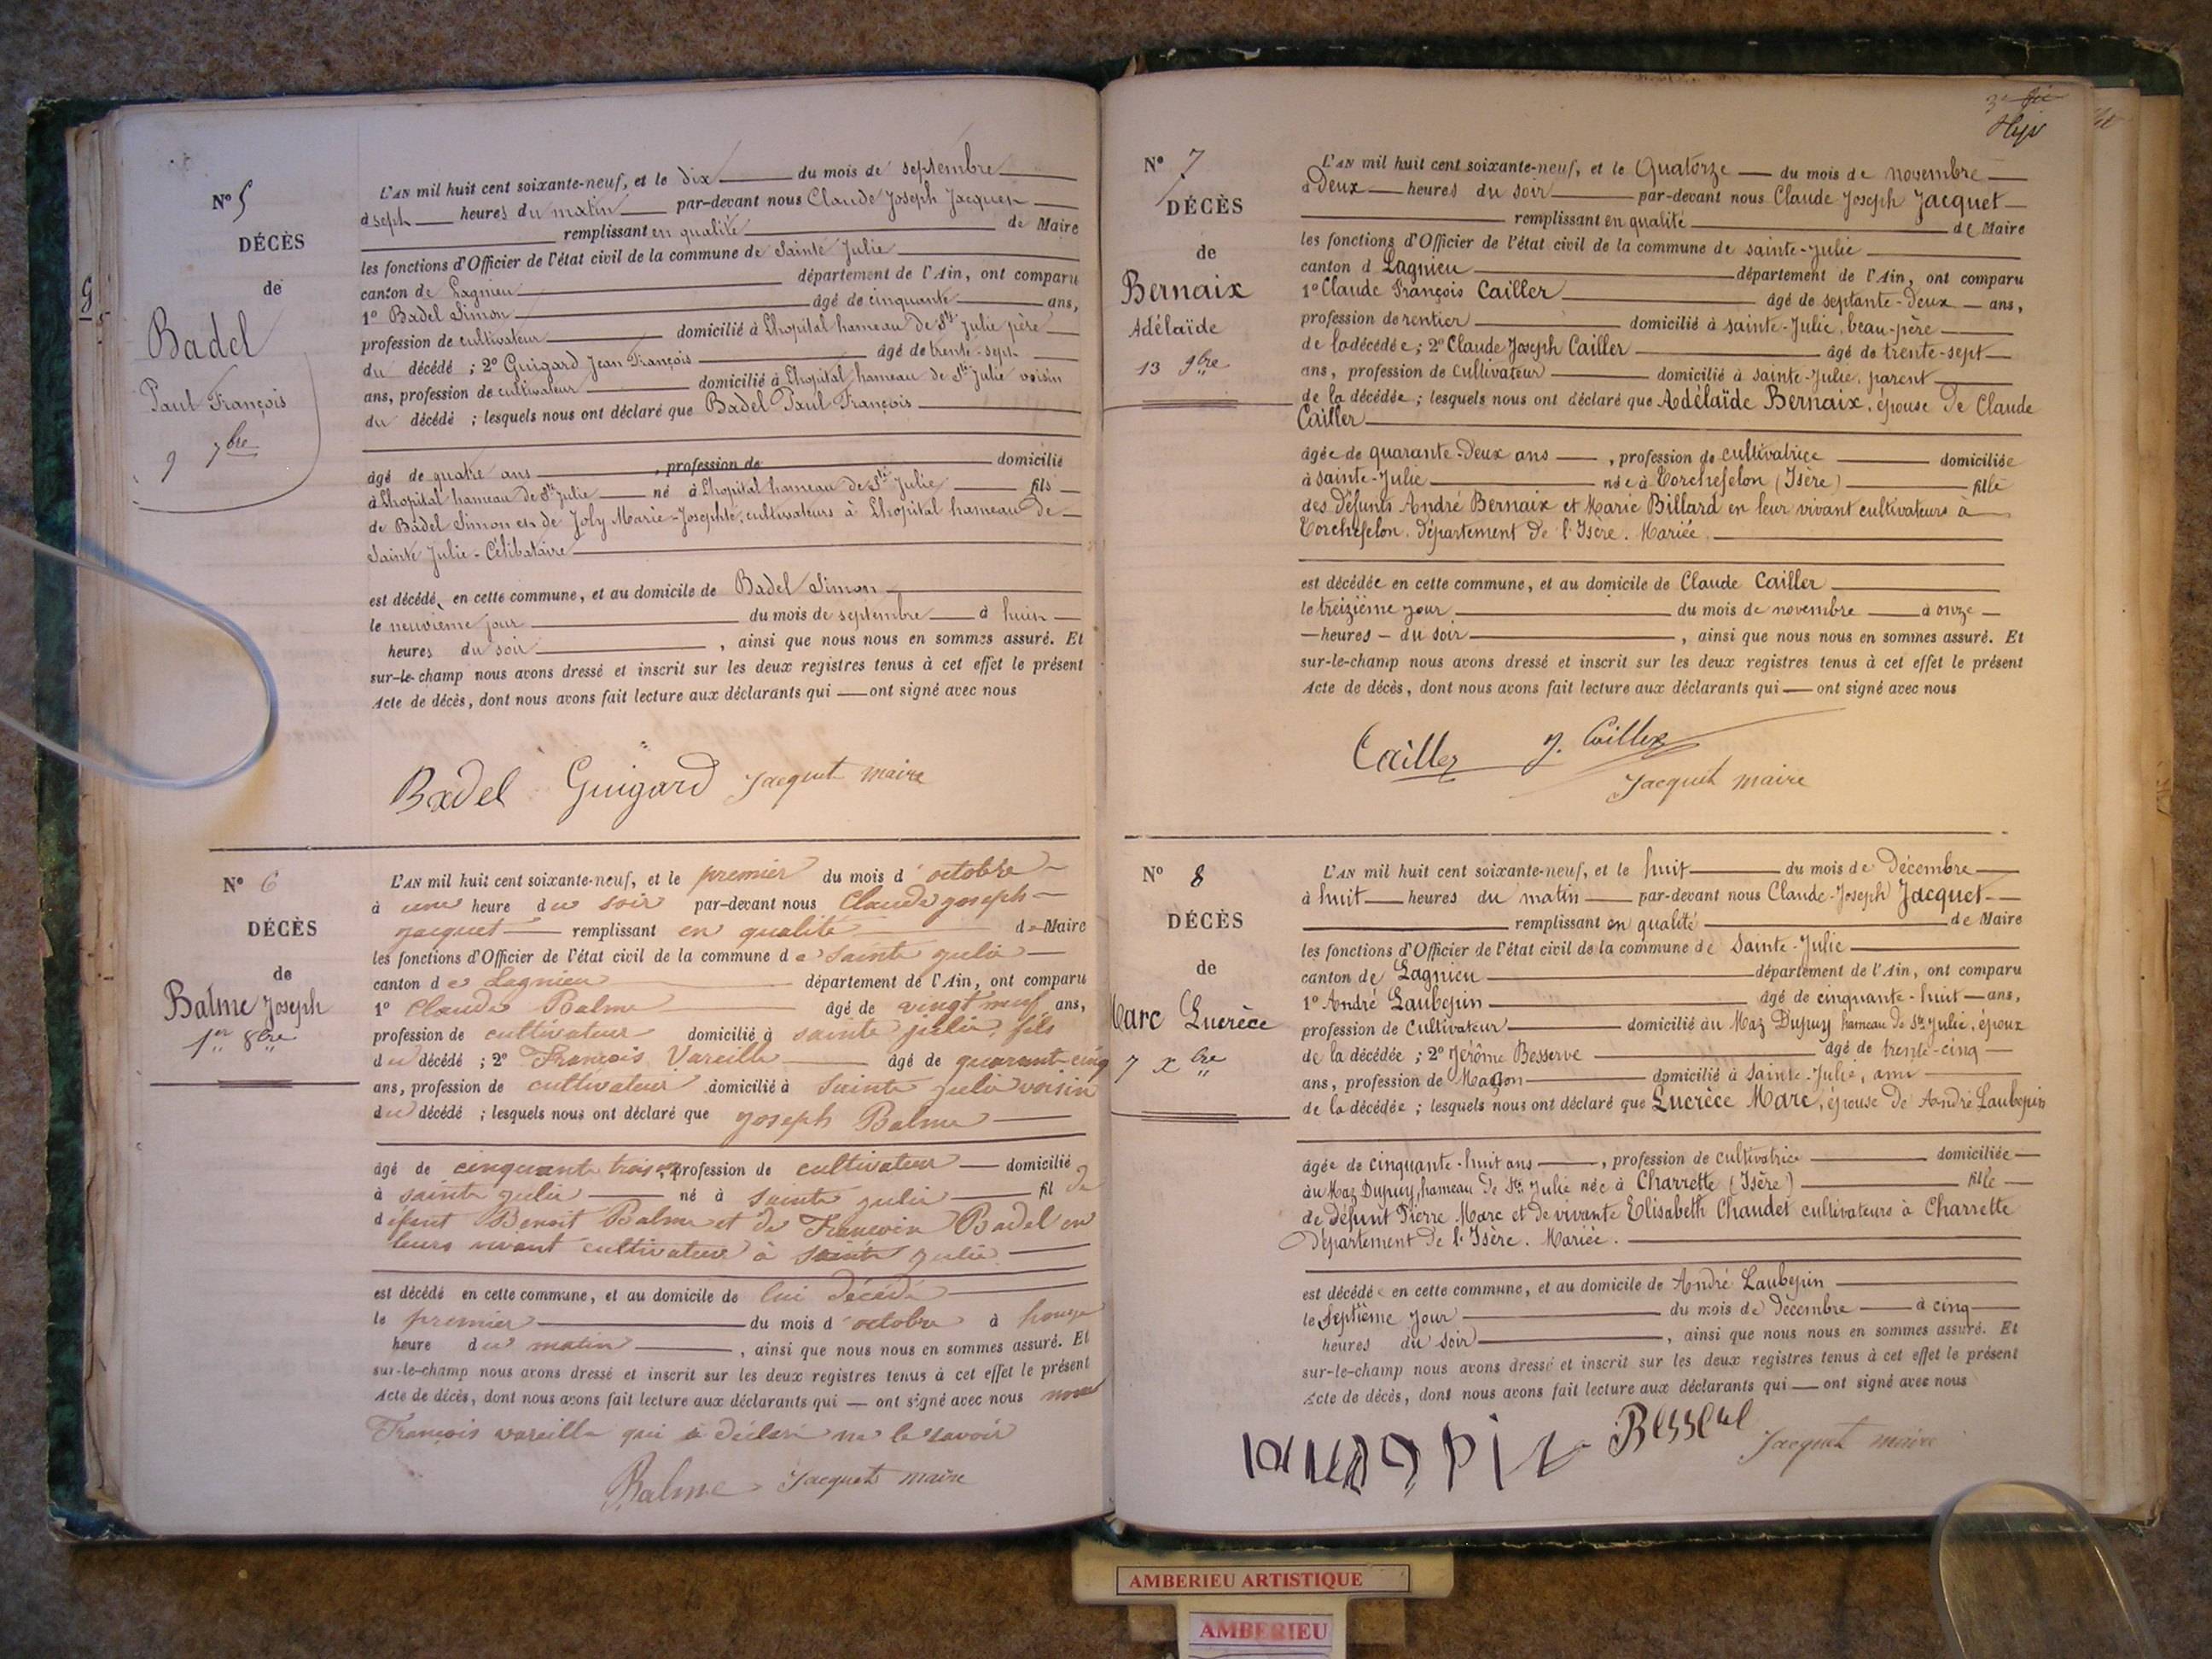 N° 5
DÉCÈS
de
Badel
Paul François
9 7bre
L'AN mil huit cent soixante-neuf, et le dix du mois de septembre
à sept heures du matin par-devant nous Claude Joseph Jacquet
remplissant en qualité de Maire
les fonctions d'Officier de l'état civil de la commune de Sainte Julie
canton de Lagnieu département de l'Ain, ont comparu
1° Badel Simon âgé de cinquante ans,
profession de cultivateur domicilié à Lhopital hameau de Ste Julie père
du décédé ; 2° Guigard Jean François âgé de trente-sept
ans, profession de cultivateur domicilié à Lhopital hameau de Ste Julie voisin
du décédé ; lesquels nous ont déclaré que Badel Paul François
âgé de quatre ans , profession de domicilié
à Lhopital hameau de Ste Julie né à Lhopital hameau de Ste Julie fils
de Badel Simon et de Joly Marie-Josephte, cultivateurs à Lhopital hameau de
Sainte Julie - Célibataire
est décédé, en cette commune, et au domicile de Badel Simon
le neuvième jour du mois de septembre à huit
heures du soir , ainsi que nous nous en sommes assuré. Et
sur-le-champ nous avons dressé et inscrit sur les deux registres tenus à cet effet le présent
Acte de décès, dont nous avons fait lecture aux déclarants qui ont signé avec nous
Badel Guigard Jacquet maire
N° 6
DÉCÈS
de
Balme Joseph
1er 8bre
L'AN mil huit cent soixante-neuf, et le premier du mois d'octobre
à une heure du soir par-devant nous Claude joseph
jacquet remplissant en qualité de Maire
les fonctions d'Officier de l'état civil de la commune de Sainte julie
canton de Lagnieu département de l'Ain, ont comparu
1° Claude Balme âgé de vingt neuf ans,
profession de cultivateur domicilié à sainte julie, fils
du décédé ; 2° François Vareille âgé de quarant-cinq
ans, profession de cultivateur domicilié à Sainte julie voisin
du décédé ; lesquels nous ont déclaré que joseph Balme
âgé de cinquante trois ans, profession de cultivateur domicilié
à sainte julie né à Sainte julie fil de
défunt Benoit Balme et de Francoise Badel en
leurs vivant cultivateur à sainte julie
est décédé en cette commune, et au domicile de lui décédé
le premier du mois d'octobre à honze
heure du matin , ainsi que nous nous en sommes assuré. Et
sur-le-champ nous avons dressé et inscrit sur les deux registres tenus à cet effet le présent
Acte de décès, dont nous avons fait lecture aux déclarants qui ont signé avec nous
François vareille qui a déclaré ne le savoir
Balme Jacquet maire
N° 7
DÉCÈS
de
Bernaix
Adélaïde
13 9bre
L'AN mil huit cent soixante-neuf, et le Quatorze du mois de novembre
à Deux heures du soir par-devant nous Claude Joseph Jacquet
remplissant en qualité de Maire
les fonctions d'Officier de l'état civil de la commune de sainte-Julie
canton d Lagnieu département de l'Ain, ont comparu
1° Claude François Cailler âgé de septante-Deux ans,
profession de rentier domicilié à sainte-Julie, beau-père
de la décédée ; 2° Claude Joseph Cailler âgé de trente-sept
ans, profession de Cultivateur domicilié à sainte-Julie, parent
de la décédée ; lesquels nous ont déclaré que Adélaïde Bernaix, épouse De Claude
Cailler
âgée de quarante-Deux ans , profession de cultivatrice domiciliée
à sainte-Julie née à Torchefelon (Isère) fille
des Défunts André Bernaix et Marie Billard en leur vivant cultivateurs à
Torchefelon. Département De l'Isère. Mariée.
est décédée en cette commune, et au domicile de Claude Cailler
le treizième jour du mois de novembre à onze
heures du soir , ainsi que nous nous en sommes assuré. Et
sur-le-champ nous avons dressé et inscrit sur les deux registres tenus à cet effet le présent
Acte de décès, dont nous avons fait lecture aux déclarants qui ont signé avec nous
Cailler J. Cailler
Jacquet maire
N° 8
DÉCÈS
de
Marc Lucrèce
7 xbre
L'AN mil huit cent soixante-neuf, et le huit du mois de Décembre
à huit heures du matin par-devant nous Claude-Joseph Jacquet
remplissant en qualité de Maire
les fonctions d'Officier de l'état civil de la commune de Sainte-Julie
canton de Lagnieu département de l'Ain, ont comparu
1° André Laubepin âgé de cinquante-huit ans,
profession de Cultivateur domicilié au Maz Dupuy hameau de Ste Julie, époux
de la décédée ; 2° Jérôme Besserve âgé de trente-cinq
ans, profession de Maçon domicilié à Sainte-Julie, ami
de la décédée ; lesquels nous ont déclaré que Lucrèce Marc, épouse De André Laubepin
âgée de cinquante-huit ans , profession de cultivatrice domiciliée
au Maz Dupuy, hameau De Ste Julie née à Charrette (Isère) fille
de Défunt Pierre Marc et de vivante Elisabeth Chaudet cultivateurs à Charrette
Département De l'Isère. Mariée.
est décédée en cette commune, et au domicile de André Laubepin
le Septième jour du mois de Décembre à cinq
heures du soir , ainsi que nous nous en sommes assuré. Et
sur-le-champ nous avons dressé et inscrit sur les deux registres tenus à cet effet le présent
Acte de décès, dont nous avons fait lecture aux déclarants qui ont signé avec nous
Jacquet maire
AMBERIEU ARTISTIQUE
AMBERIEU